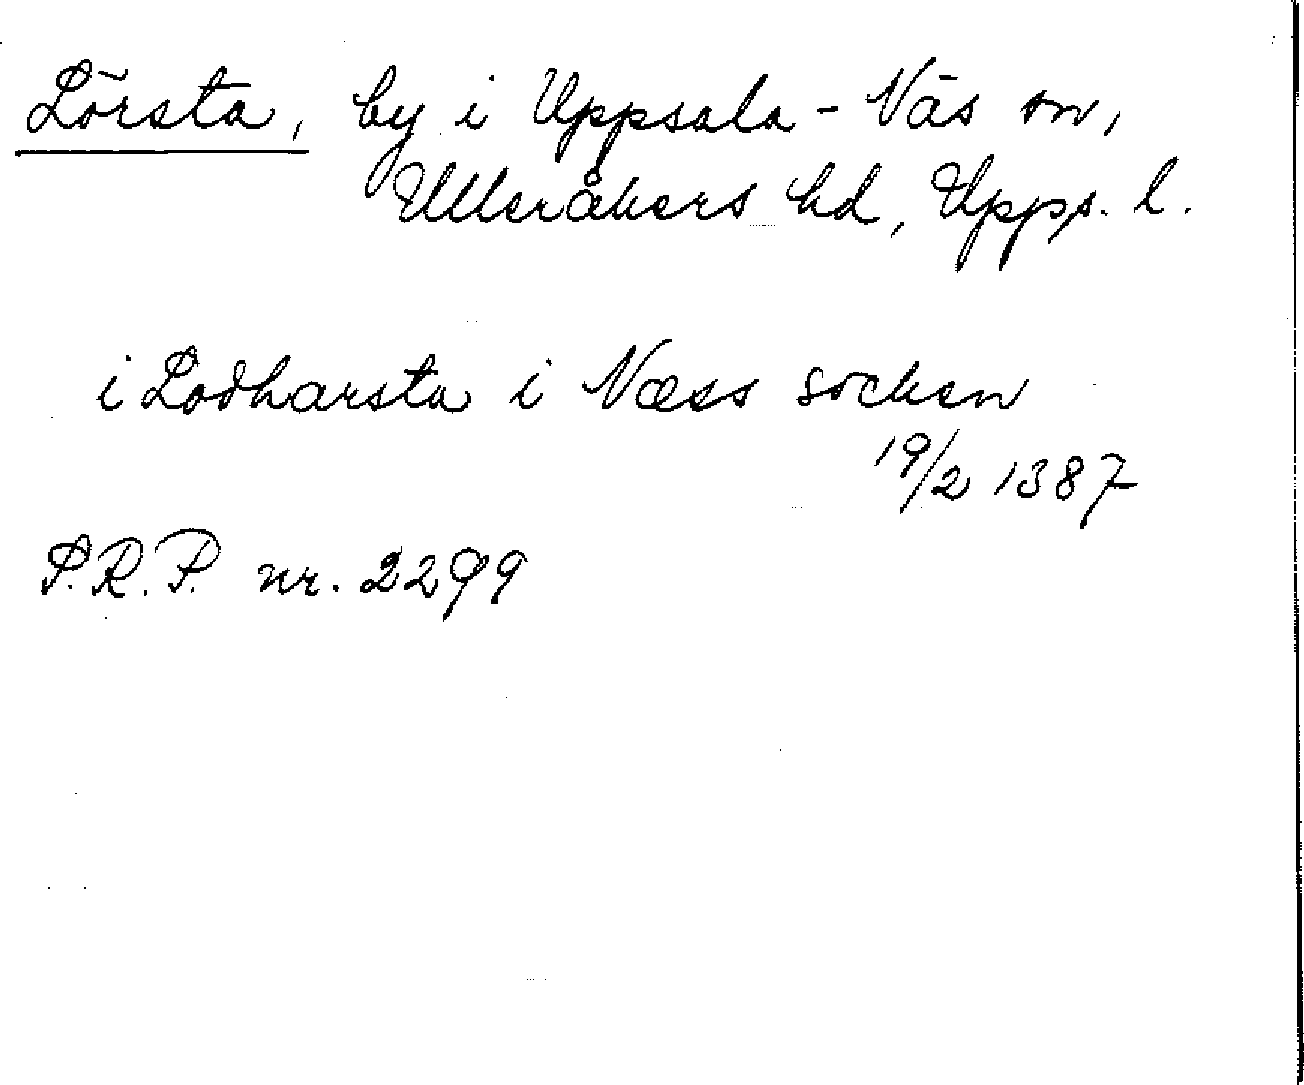 Lörsta, by i Uppsala-Näs sn,
Ulleråkers hd, Upps. l.
i Lodharsta i Næss socken
19/2 1387
S.R.P. nr. 2299